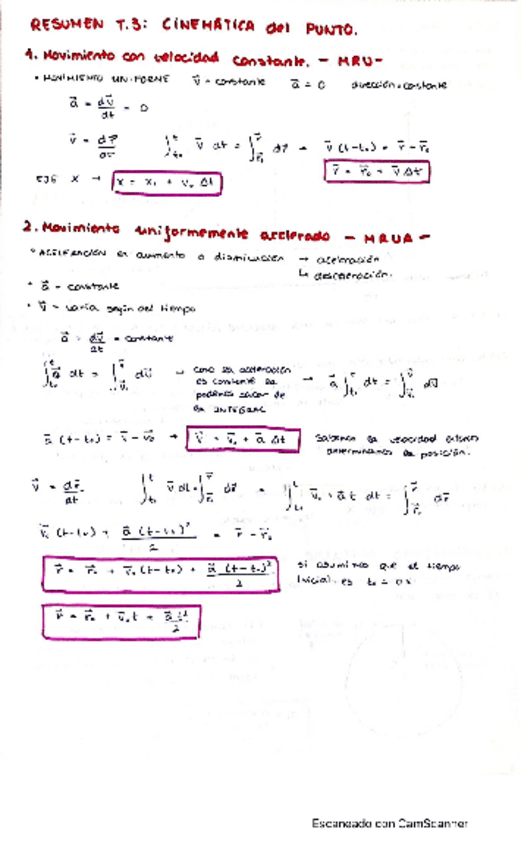 RESUMEN T.3: CINEMÁTICA del PUNTO.
1. Movimiento con velocidad constante. - MRU -
• MOVIMIENTO UNIFORME v⃗ = constante a⃗ = 0 dirección = constante
a⃗ = dv⃗/dt = 0
v⃗ = dr⃗/dt ∫ₜ₀ᵗ v⃗ dt = ∫ᵣ₀ʳ dr⃗ = v⃗ (t-t₀) = r⃗ - r⃗₀
r⃗ = r⃗₀ + v⃗ Δt
EJE X → x = x₀ + v₀ Δt
2. Movimiento uniformemente acelerado - MRUA -
• ACELERACIÓN en aumento o disminución → aceleración
↳ desaceleración.
• a⃗ = constante
• v⃗ = varía según del tiempo
a⃗ = dv⃗/dt = constante
∫ₜ₀ᵗ a⃗ dt = ∫ᵥ₀ᵛ dv⃗ → como la aceleración → a⃗ ∫ₜ₀ᵗ dt = ∫ᵥ₀ᵛ dv⃗
es constante la
podemos sacar de
la INTEGRAL
a⃗ (t-t₀) = v⃗ - v⃗₀ → v⃗ = v⃗₀ + a⃗ Δt Sabemos la velocidad
determinamos la posición.
v⃗ = dr⃗/dt ∫ₜ₀ᵗ v⃗ dt = ∫ᵣ₀ʳ dr⃗ = ∫ₜ₀ᵗ v⃗₀ + a⃗ t dt = ∫ᵣ₀ʳ dr⃗
v⃗₀ (t-t₀) + a⃗ (t-t₀)²/2 = r⃗ - r⃗₀
r⃗ = r⃗₀ + v⃗₀ (t-t₀) + a⃗ (t-t₀)²/2 si asumimos que el tiempo
inicial es t₀ = 0s
r⃗ = r⃗₀ + v⃗₀ t + a⃗ t²/2
Escaneado con CamScanner